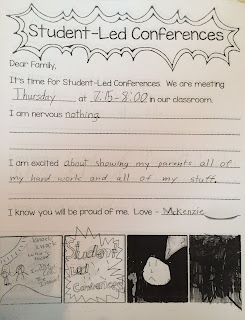 Student-Led Conferences
Dear Family,
It's time for Student-Led Conferences. We are meeting
Thursday at 7:15-8:00 in our classroom.
I am nervous nothing
I am excited about showing my parents all of
my hard work and all of my stuff.
I know you will be proud of me. Love - McKenzie
Student
Led
Conferences